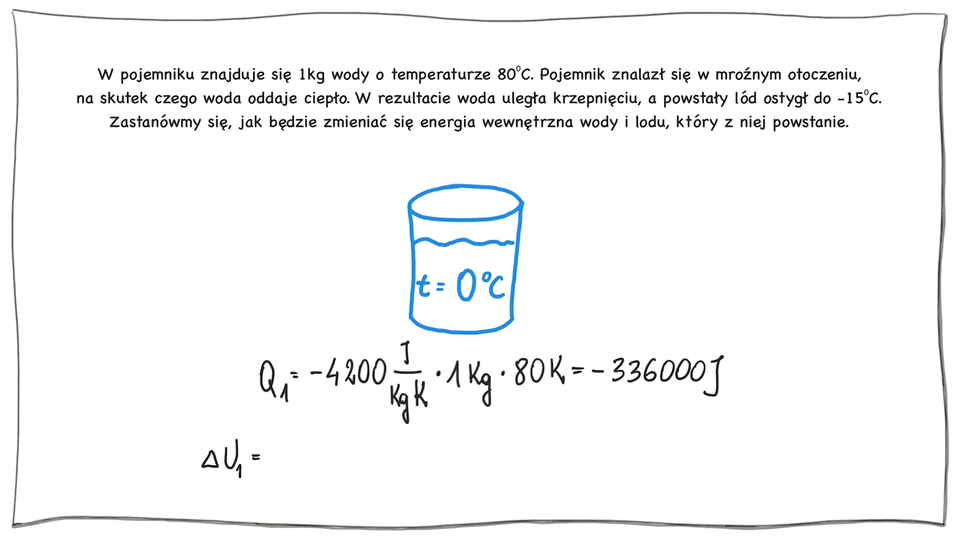 W pojemniku znajduje się 1kg wody o temperaturze 80°C. Pojemnik znalazł się w mroźnym otoczeniu,
na skutek czego woda oddaje ciepło. W rezultacie woda uległa krzepnięciu, a powstały lód ostygł do -15°C.
Zastanówmy się, jak będzie zmieniać się energia wewnętrzna wody i lodu, który z niej powstanie.
t = 0°C
Q₁ = -4200 J/kgK · 1 kg · 80 K = -336000 J
ΔU₁ =